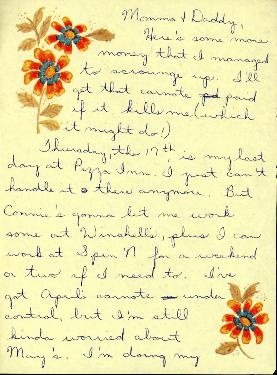 Momma & Daddy,
Here's some more
money that I managed
to scrounge up. I'll
get that carnote pd paid
if it kills me (which
it might do!)
Thursday, the 17th, is my last
day at Pizza Inn. I just can't
handle it there anymore. But
Connie's gonna let me work
some at Winchell's, plus I can
work at Spin 'N for a weekend
or two if I need to. I've
got April's carnote under
control, but I'm still
kinda worried about
May's. I'm doing my